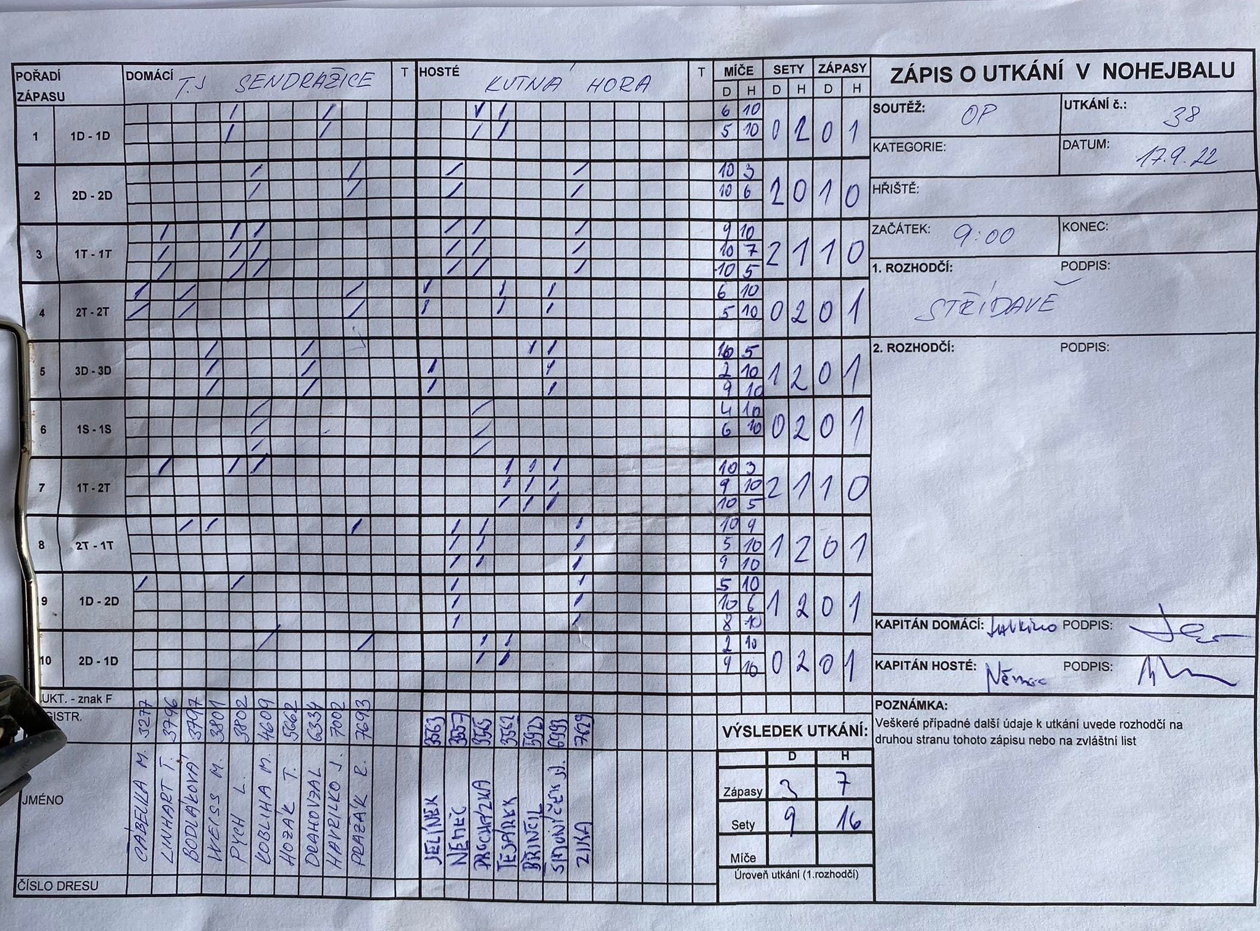 ZÁPIS O UTKÁNÍ V NOHEJBALU
POŘADÍ ZÁPASU DOMÁCÍ TJ SENDRAŽICE T HOSTÉ KUTNÁ HORA T MÍČE SETY ZÁPASY
D H D H D H
SOUTĚŽ: OP UTKÁNÍ č.: 38
KATEGORIE: DATUM: 17.9.22
HŘIŠTĚ:
ZAČÁTEK: 9:00 KONEC:
1. ROZHODČÍ: PODPIS:
STŘÍDAVĚ
2. ROZHODČÍ: PODPIS:
1 1D - 1D 6 10 0 2 0 1
5 10
2 2D - 2D 10 3 2 0 1 0
10 6
3 1T - 1T 9 10 2 1 1 0
10 7
10 5
4 2T - 2T 6 10 0 2 0 1
5 10
5 3D - 3D 10 5 1 2 0 1
2 10
9 10
6 1S - 1S 4 10 0 2 0 1
6 10
7 1T - 2T 10 3 2 1 1 0
9 10
10 5
8 2T - 1T 10 9 1 2 0 1
5 10
9 10
9 1D - 2D 5 10 1 2 0 1
10 6
8 10
10 2D - 1D 2 10 0 2 0 1
9 10
KAPITÁN DOMÁCÍ: PODPIS:
KAPITÁN HOSTÉ: Němec PODPIS:
UKT. - znak F
GISTR.
JMÉNO
ČÍSLO DRESU
CABELLA M. 3277
LINHART T. 3796
BODLÁKOVÁ 3797
WEISS M. 3801
PYCH L. 3802
KOBLIHA M. 4609
HOZÁK T. 5662
DRAHOVZAL 6334
HAVRLKO J. 7002
7693
JELÍNEK 3563
NĚMEC
PROCHÁZKA 3565
3562
BRINCIL
7629
VÝSLEDEK UTKÁNÍ:
D H
Zápasy 3 7
Sety 9 16
Míče
Úroveň utkání (1.rozhodčí)
POZNÁMKA:
Veškeré případné další údaje k utkání uvede rozhodčí na
druhou stranu tohoto zápisu nebo na zvláštní list